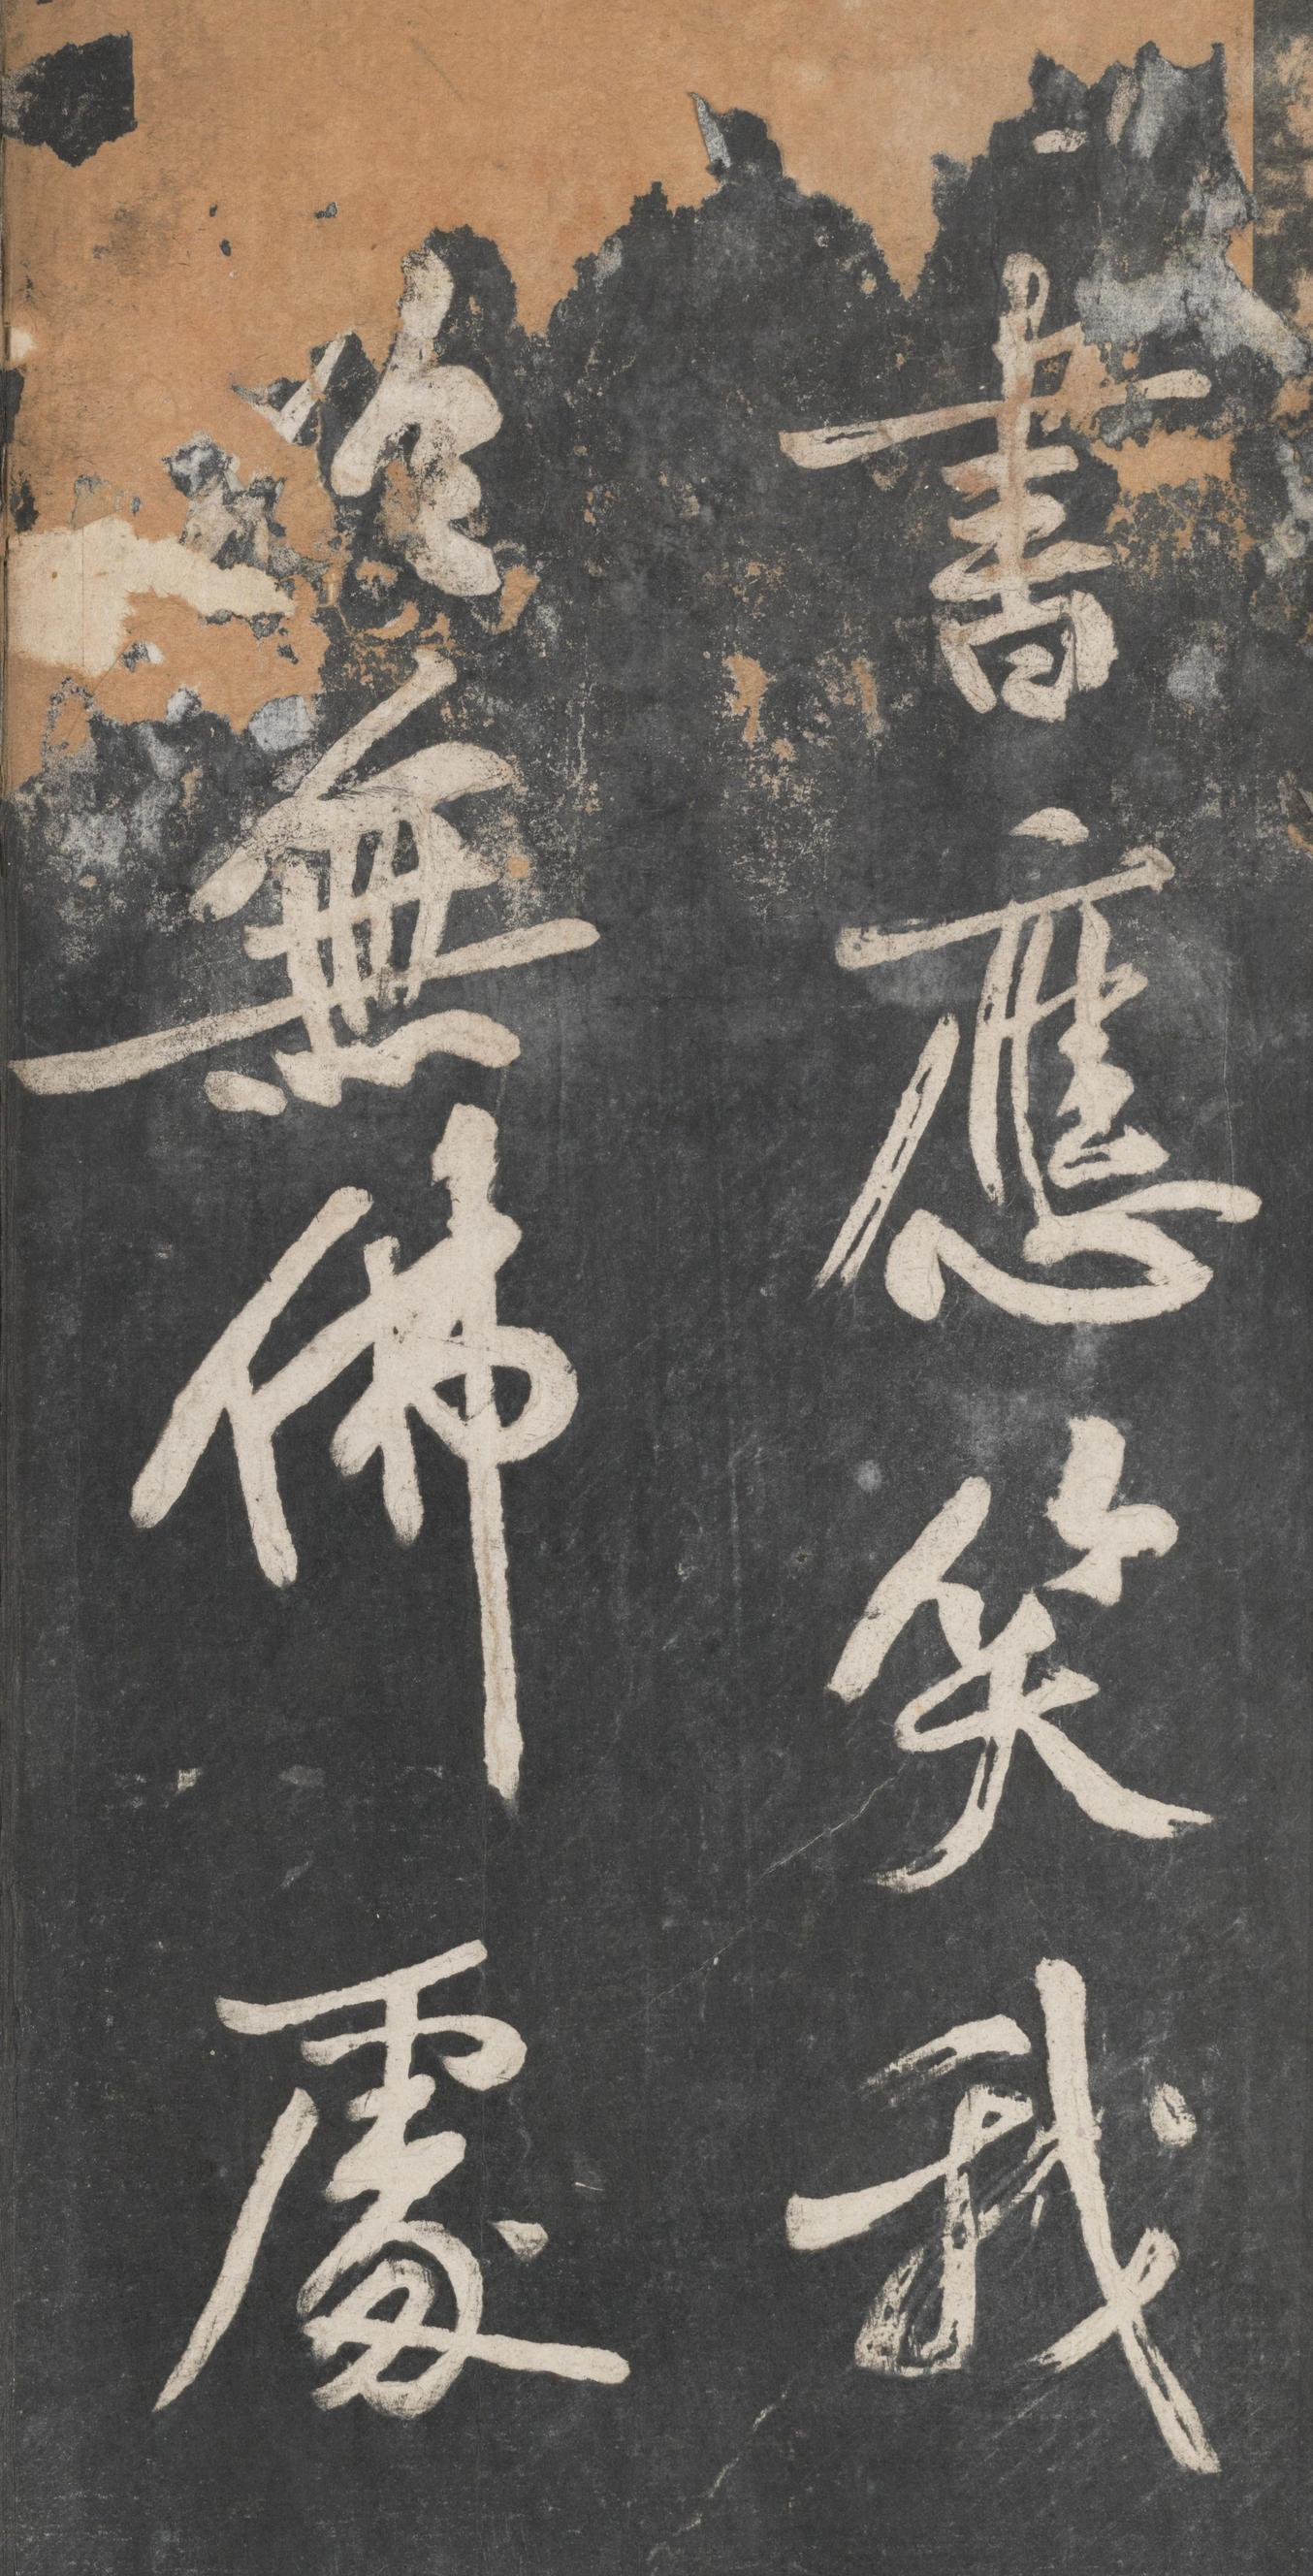 書應笑我
於無佛處